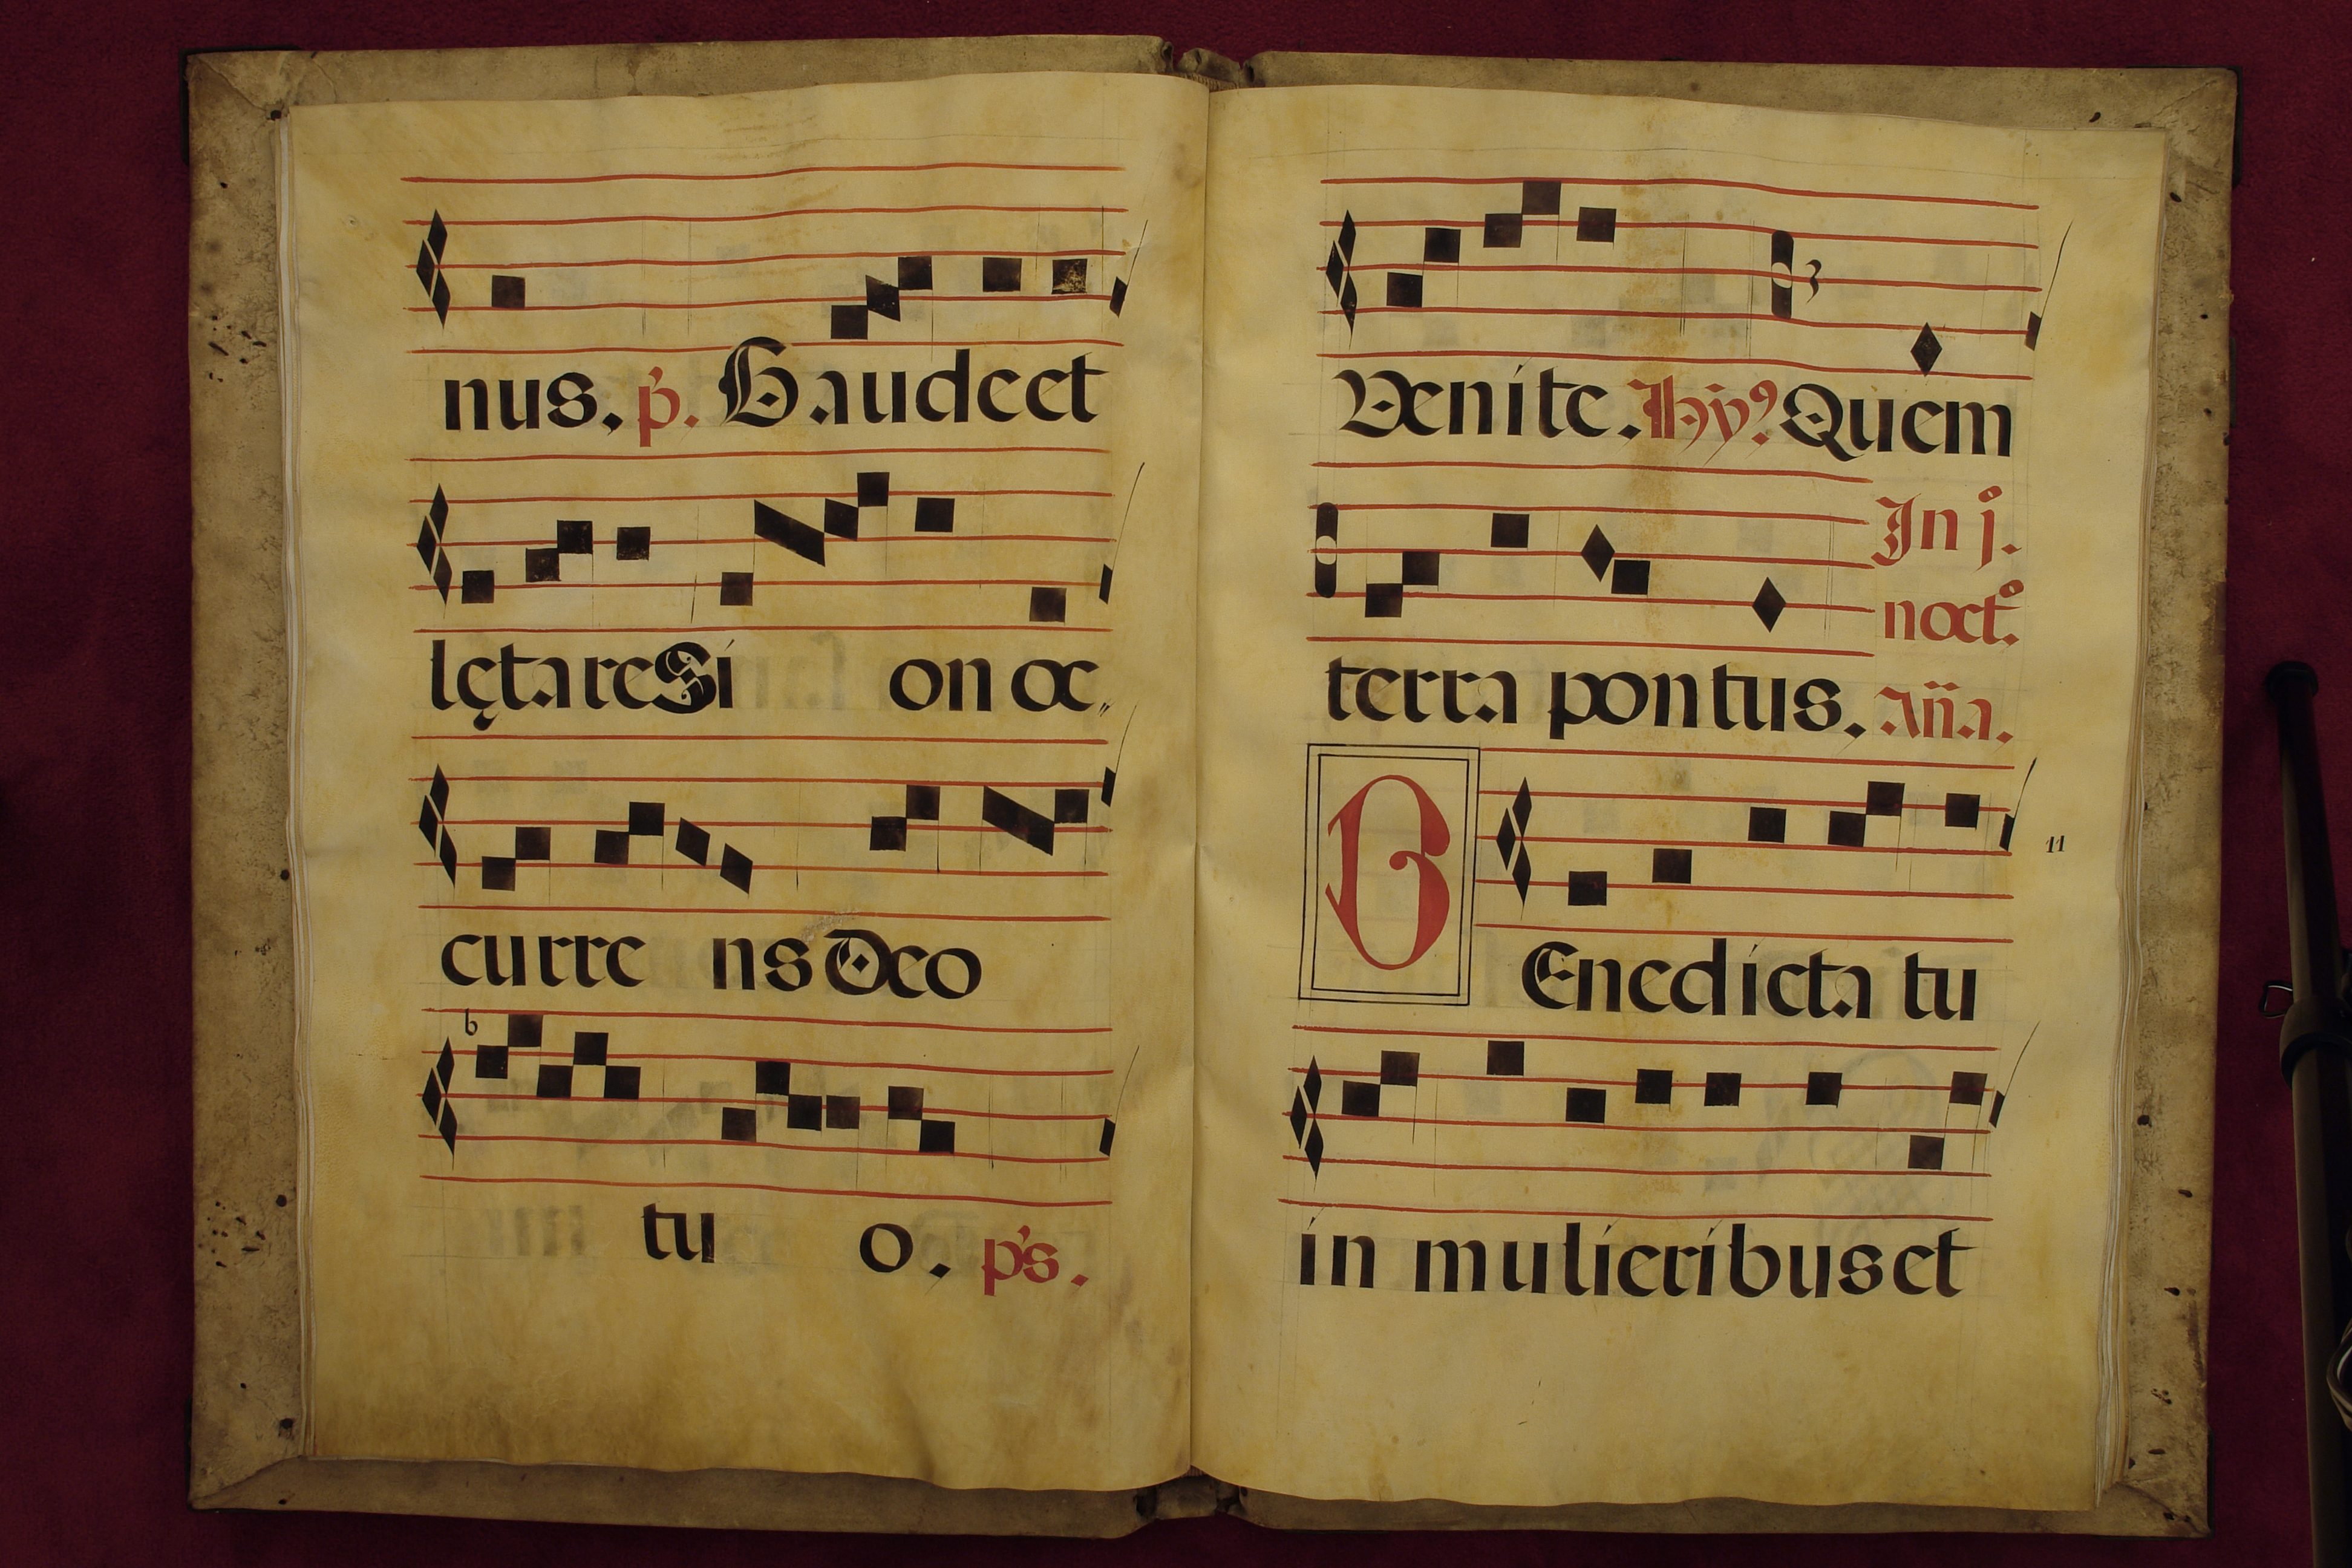 nus. p̃. Gaudeet
lętare Si on oc,,
curre ns Deo
b
tu o. p̃s.
Venite. Hỹ9 Quem
In j.º
terra pontus.
noct.º
Añã.
BEnedicta tu
11
in mulieribus et